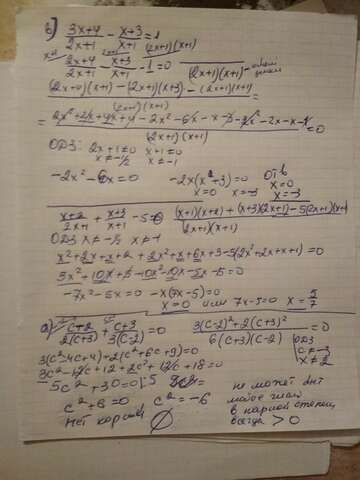 б) (3x+4)/(2x+1) - (x+3)/(x+1) = 1
(2x+4)/(2x+1) - (x+3)/(x+1) - 1 = 0 (2x+1)(x+1) -
(2x+1)(x+3) - (2x+1)(x+1)
(2x+1)(x+1)
ОДЗ: 2x+1≠0 x+1≠0
x≠-1/2 x≠-1
-2x²-6x=0 -2x(x²+3)=0 Отв
x=0 x=-3 x=0
x=-3
(x+2)/(2x+1) + (x+3)/(x+1) - 5=0 ((x+1)(x+2)+(x+3)(2x+1)-5(2x+1)(x+1))/((2x+1)(x+1))
ОДЗ x≠-½ x≠-1
x²+2x+x+2+2x²+x+6x+3-5(2x²+2x+x+1)=0
3x²+10x+5-10x²-10x-5x-5=0
-7x²-5x=0 -x(7x-5)=0
x=0 или 7x-5=0 x=5/7
а) (c+2)/(2(c+3)) + (c+3)/(3(c-2)) =0 (3(c-2)²+2(c+3)²)/(6(c+3)(c-2)) =0
ОДЗ
c≠-3
x≠2
3(c²-4c+4)+2(c²+6c+9)=0
3c²-12c+12+2c²+12c+18=0
5c²+30=0|:5
c²+6=0 c²=-6
Нет корней ∅
не может быт
в парной степени
всегда >0